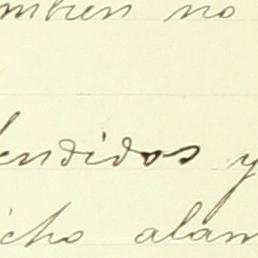 mbien no
endidos y
icho alam